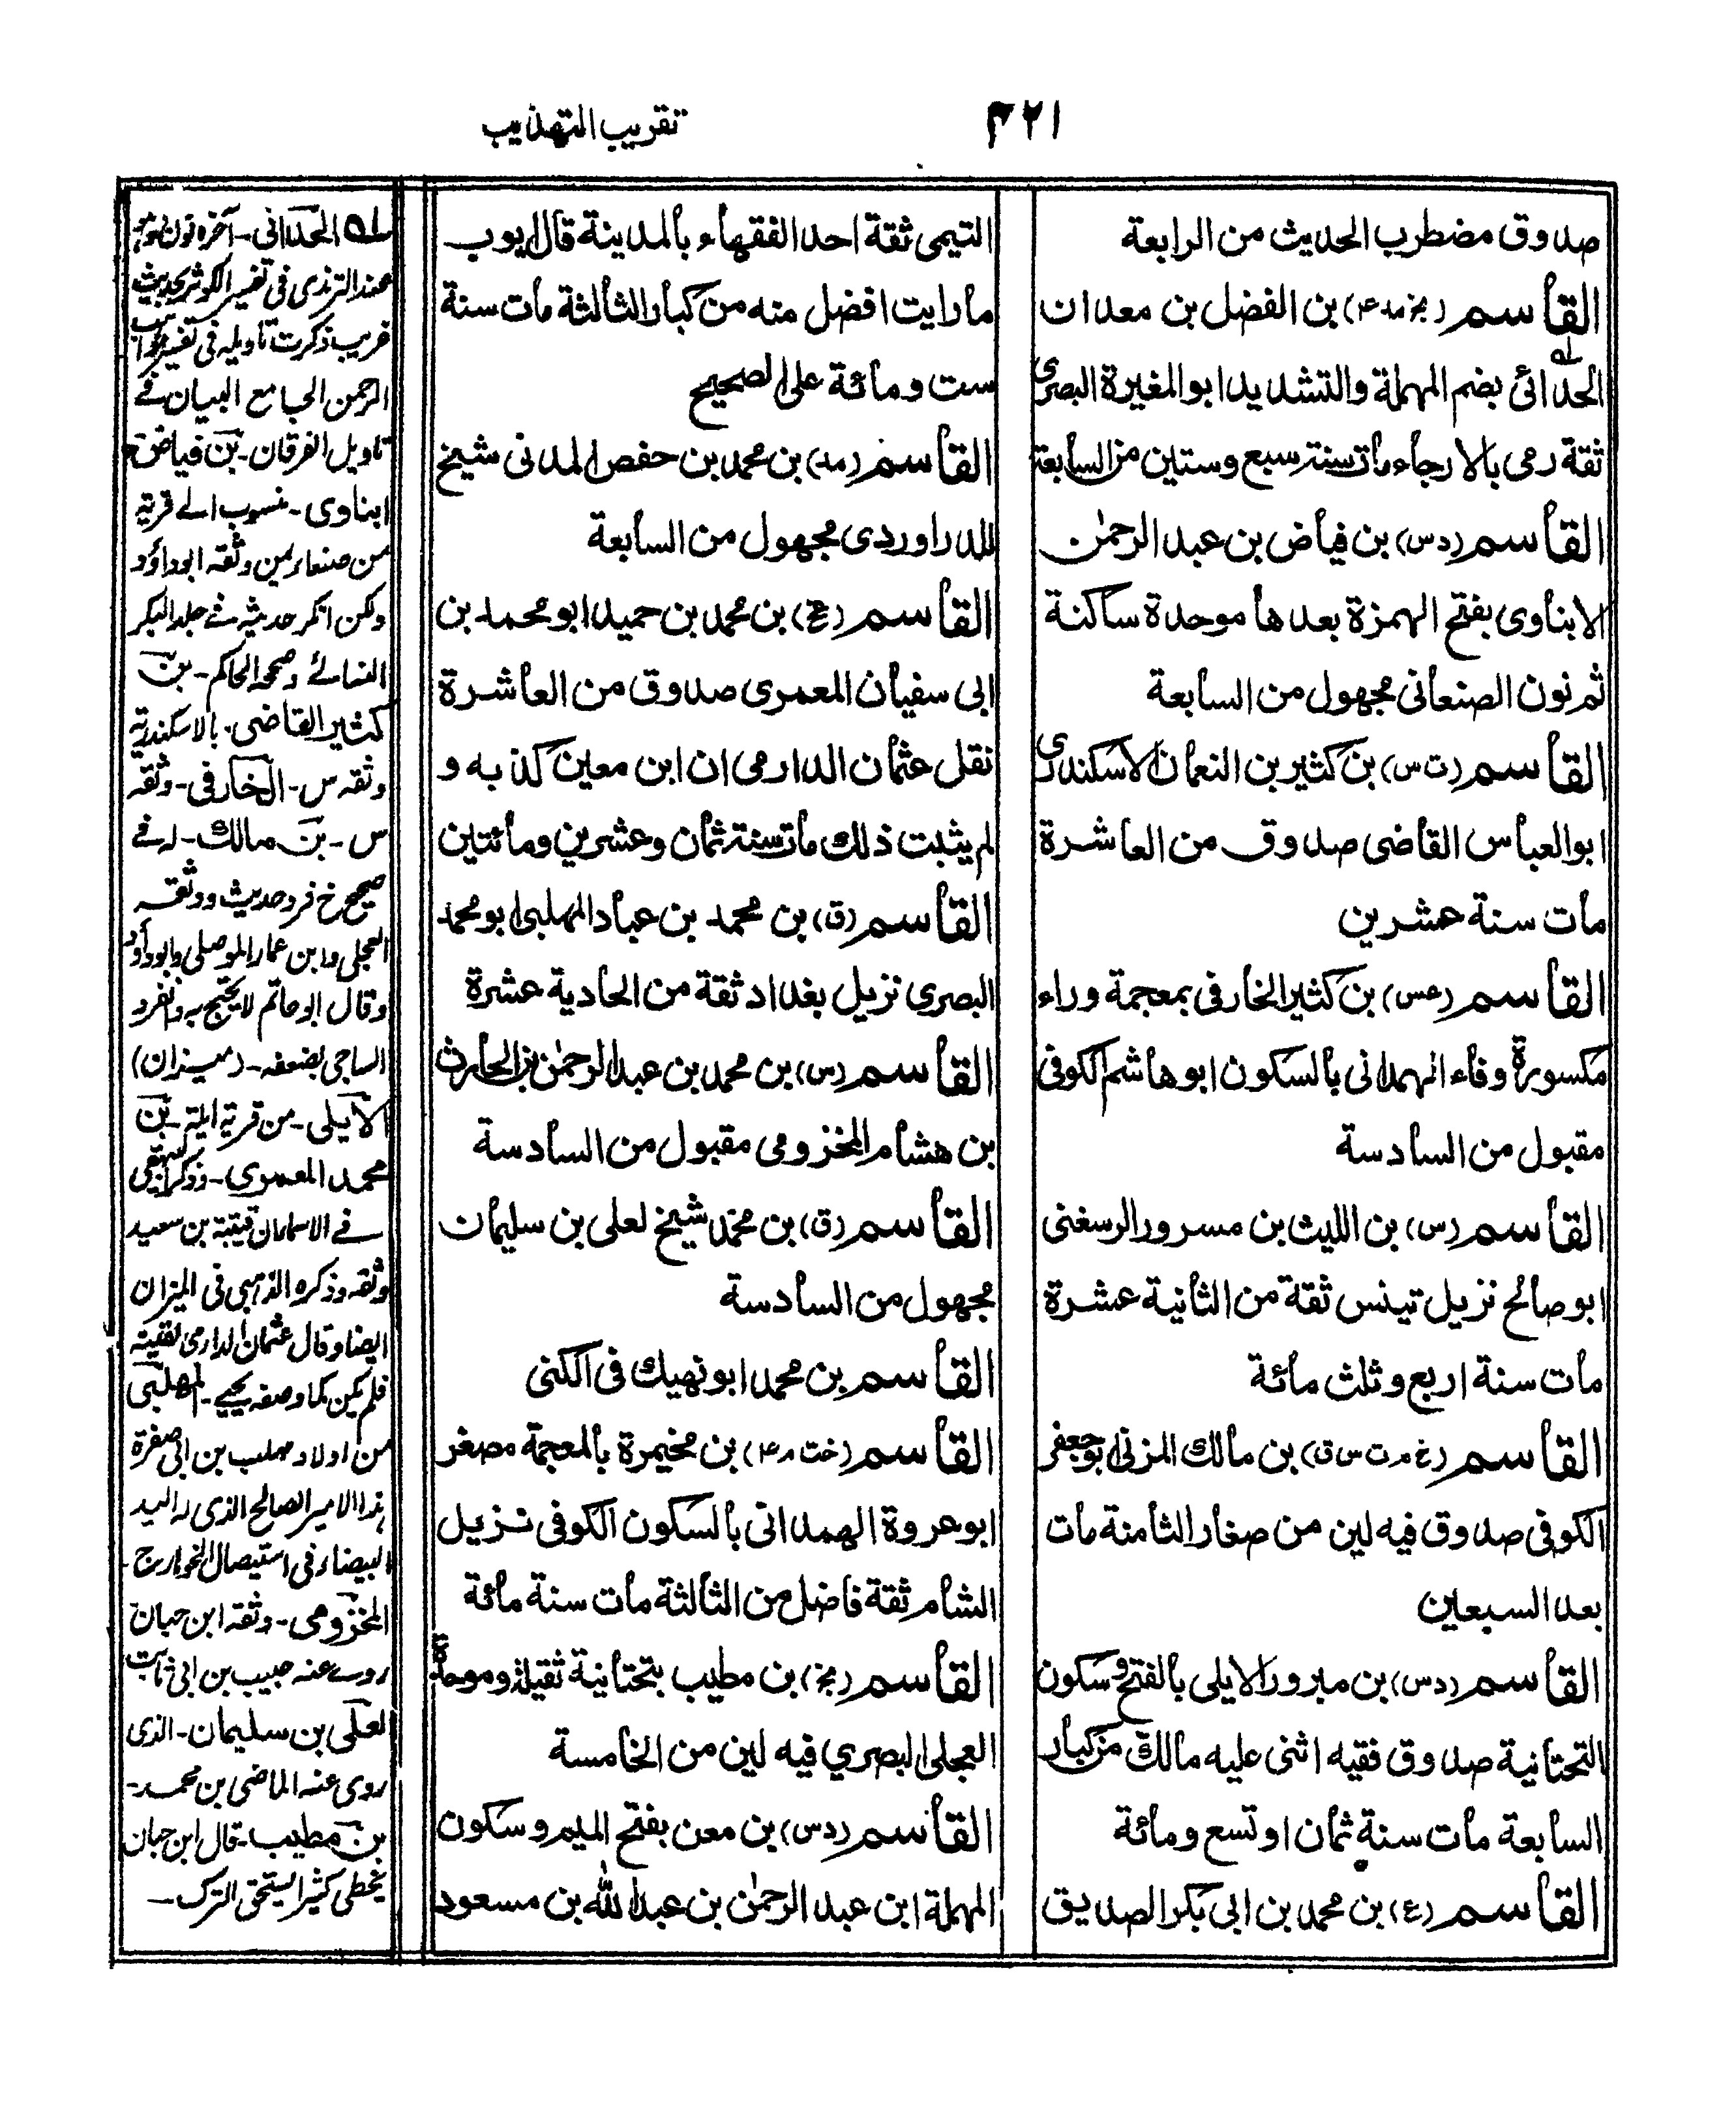 ٤٢١
تقريب التهذيب
صدوق مضطرب الحديث من الرابعة
القاسم (بخ مد ۴) بن الفضل بن معدان
الحدانى بضم المهملة والتشديد ابو المغيرة البصرى
ثقة رمى بالارجاء مات سنة سبع وستين من السابعة
القاسم (د س) بن فياض بن عبد الرحمٰن
الابناوى بفتح الهمزة بعدها موحدة ساكنة
ثم نون الصنعانى مجهول من السابعة
القاسم (ت س) بن كثير بن النعمان الاسكندرى
ابو العباس القاضى صدوق من العاشرة
مات سنة عشرين
القاسم (عس) بن كثير الخارفى بمعجمة وراء
مكسورة وفاء الهمدانى بالسكون ابو هاشم الكوفى
مقبول من السادسة
القاسم (س) بن الليث بن مسرور الرسغنى
ابو صالح نزيل تينس ثقة من الثانية عشرة
مات سنة اربع وثلث مائة
القاسم (خ م ت س ق) بن مالك المزنى ابو جعفر
الكوفى صدوق فيه لين من صغار الثامنة مات
بعد السبعين
القاسم (د س) بن مبرور الايلى بالفتح وسكون
التحتانية صدوق فقيه اثنى عليه مالك من كبار
السابعة مات سنة ثمان او تسع ومائة
القاسم (ع) بن محمد بن ابى بكر الصديق
التيمى ثقة احد الفقهاء بالمدينة قال ايوب
ما رايت افضل منه من كبار الثالثة مات سنة
ست ومائة على الصحيح
القاسم (مد) بن محمد بن حفص المدنى شيخ
للدراوردى مجهول من السابعة
القاسم (عخ) بن محمد بن حميد ابو محمد بن
ابى سفيان المعمرى صدوق من العاشرة
نقل عثمان الدارمى ان ابن معين كذبه و
لم يثبت ذلك مات سنة ثمان وعشرين ومائتين
القاسم (ق) بن محمد بن عباد المهلبى ابو محمد
البصرى نزيل بغداد ثقة من الحادية عشرة
القاسم (س) بن محمد بن عبد الرحمٰن بن الحارث
بن هشام المخزومى مقبول من السادسة
القاسم (ق) بن محمد شيخ لعلى بن سليمان
مجهول من السادسة
القاسم بن محمد ابو نهيك فى الكنى
القاسم (خت م ۴) بن مخيمرة بالمعجمة مصغر
ابو عروة الهمدانى بالسكون الكوفى نزيل
الشام ثقة فاضل من الثالثة مات سنة مائة
القاسم (بخ) بن مطيب بتحتانية ثقيلة وموحدة
العجلى البصري فيه لين من الخامسة
القاسم (د س) بن معن بفتح الميم وسكون
المهملة ابن عبد الرحمٰن بن عبد الله بن مسعود
له الحدانى - آخره نون
عند الترمذى فى تفسير الكوثر بحديث
غريب ذكرت تاويله فى تفسير
الرحمن الجامع البيان فے
تاويل الفرقان - بن فياض
ابناوى - منسوب الے قرية
من صنعاء يمن وثقه ابو داؤد
ولكن انكر حديثه فے جلد البكر
النسائے وصححه الحاكم - بن
كثير القاضى - بالاسكندرية
وثقه س - الخارفى - وثقه
س - بن مالك - له فے
صحيح خ فرد حديث ووثقه
العجلى وابن عمار الموصلى وابو داؤد
وقال ابو حاتم لا يحتج به وانفرد
الساجى بضعفه - (ميزان)
الايلى - من قرية ايلة - بن
محمد المعمرى - وذكر البيهقى
فے الاسماء ان قتيبة بن سعيد
وثقه وذكره الذهبى فى الميزان
ايضا وقال عثمان الدارمى لقيته
فلم يكن كما وصفه يحيے - المهلبى
من اولاد مهلب بن ابى صفرة
هذا الامير الصالح الذى له اليد
البيضاء فى استيصال الخوارج -
المخزومى - وثقه ابن حبان
روے عنه حبيب بن ابى ثابت
لعلى بن سليمان - الذى
روى عنه الماضى بن محمد -
بن مطيب - قال ابن حبان
يخطى كثيرا يستحق الترك -